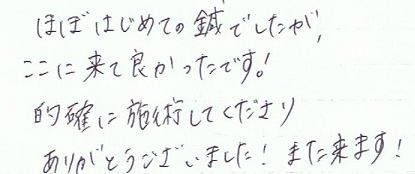 ほぼはじめての鍼でしたが、
ここに来て良かったです!
的確に施術してくださり
ありがとうございました! また来ます!